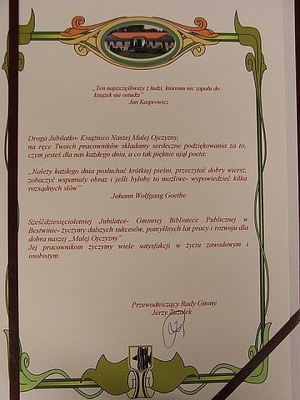 „Ten najszczęśliwszy z ludzi, któremu nie zapału do
książek nie ostudzi"
Jan Kasprowicz
Droga Jubilatko- Książnico Naszej Małej Ojczyzny,
na ręce Twoich pracowników składamy serdeczne podziękowania za to,
czym jesteś dla nas każdego dnia, a co tak pięknie ujął poeta:
„Należy każdego dnia posłuchać krótkiej pieśni, przeczytać dobry wiersz,
zobaczyć wspaniały obraz i jeśli byłoby to możliwe- wypowiedzieć kilka
rozsądnych słów"
Johann Wolfgang Goethe
Sześćdziesięcioletniej Jubilatce- Gminnej Bibliotece Publicznej w
Bestwinie- życzymy dalszych sukcesów, pomyślnych lat pracy i rozwoju dla
dobra naszej „Małej Ojczyzny".
Jej pracownikom życzymy wiele satysfakcji w życiu zawodowym i
osobistym.
Przewodniczący Rady Gminy
Jerzy